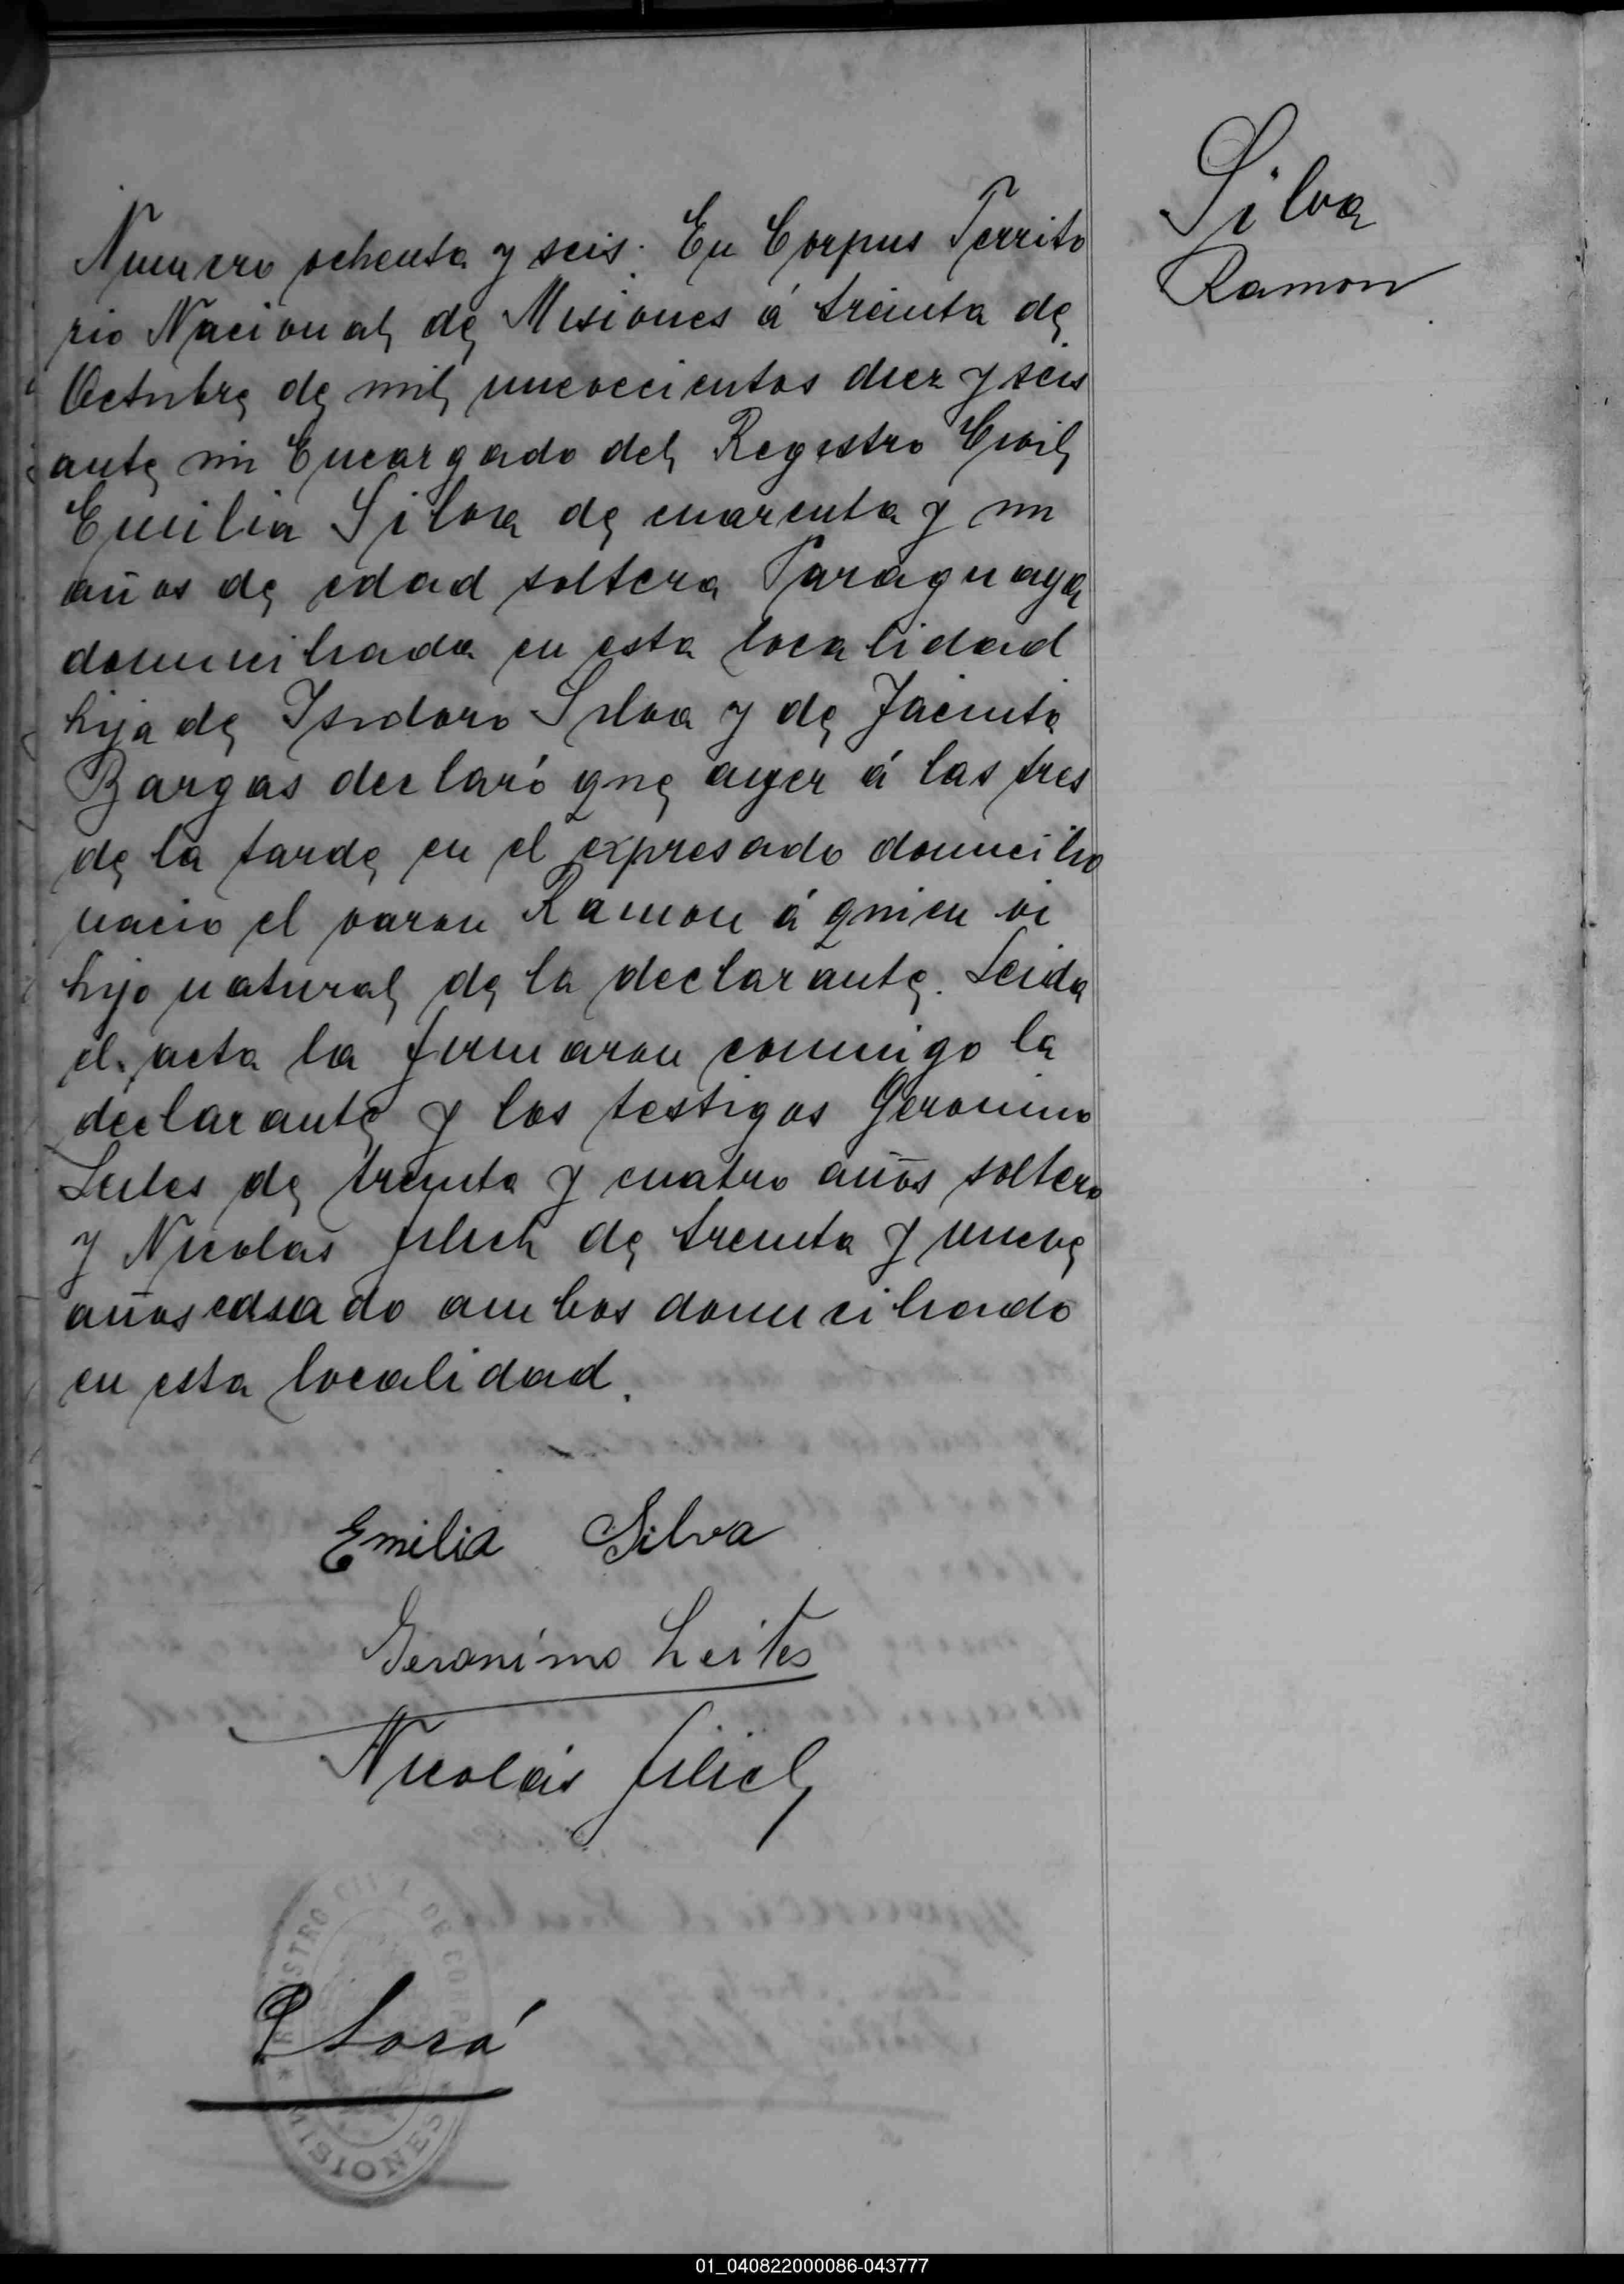 Silva
Ramon
Numero ochenta y seis. En Corpus Territo
rio Nacional de Misiones á treinta de
Octubre de mil nuevecientos diez y seis
ante mi Encargado del Registro Civil
Emilia Silva de cuarenta y un
años de edad soltera Paraguaya
domiciliada en esta localidad
hija de Isidoro Silva y de Jacinta
Bargas declaró que ayer á las tres
de la tarde en el expresado domicilio
nacio el varon Ramon á quien vi
hijo natural de la declarante. Leida
el acta la firmaron conmigo la
declarante y los testigos Geronimo
Leites de treinta y cuatro años soltero
y Nicolas de treinta y nueve
años casado ambos domiciliado
en esta localidad.
Emilia Silva
Geronimo Leites
Nicolás
REGISTRO CIVIL DE CORPUS
* MISIONES *
01_040822000086-043777